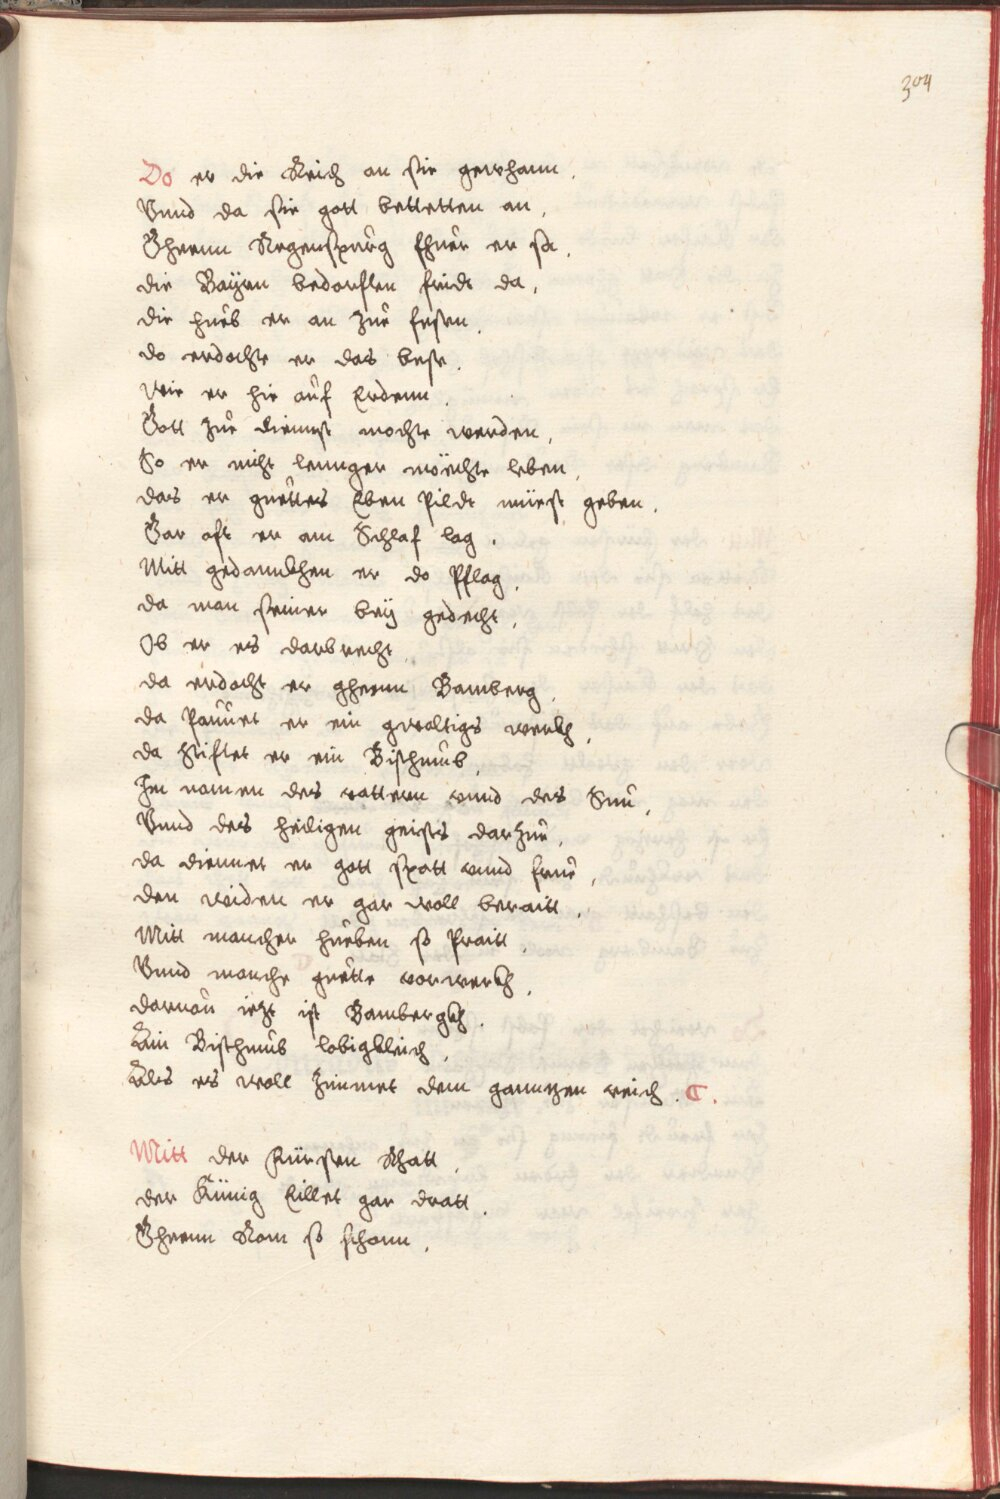 304
Do er die Reich an sie gewhann.
Vnnd da sie gott bettetten an,
Ghenn Regenspurg khuer er sa.
die Bayrn bedorfften fridt da,
die hueb er an zue festen.
do erdachte er das beste.
Wie er hie auf Erdenn.
Gott zue diennst mochte werden,
So er nicht lennger möchte leben,
das er guettes Eben Pildt müest geben.
Gar oft er am Schlaf lag.
Mitt gedannkhen er do Pflag,
da man seiner bey gedecht,
Ob er es darbrecht,
da erdacht er ghenn Bamberg,
da Pauuet er ein gwaltigs werkh,
da stiftet er ein Bisthumb,
Im namen des vattern vnnd des Sun,
Vnnd des heiligen geists darzue,
da diennet er gott spatt vnnd frue,
den widen er gar woll beraitt,
Mitt mancher hueben so Praitt,
Vnnd manche guette vorwerkh,
darnan iezt ist Bambergkh.
Ain Bisthumb lobigkleich,
Als es woll zimmet dem ganntzen reich. C.
Mitt der Fürsten Rhatt,
der Künig Eillet gar dratt.
Ghenn Rom so schonn,